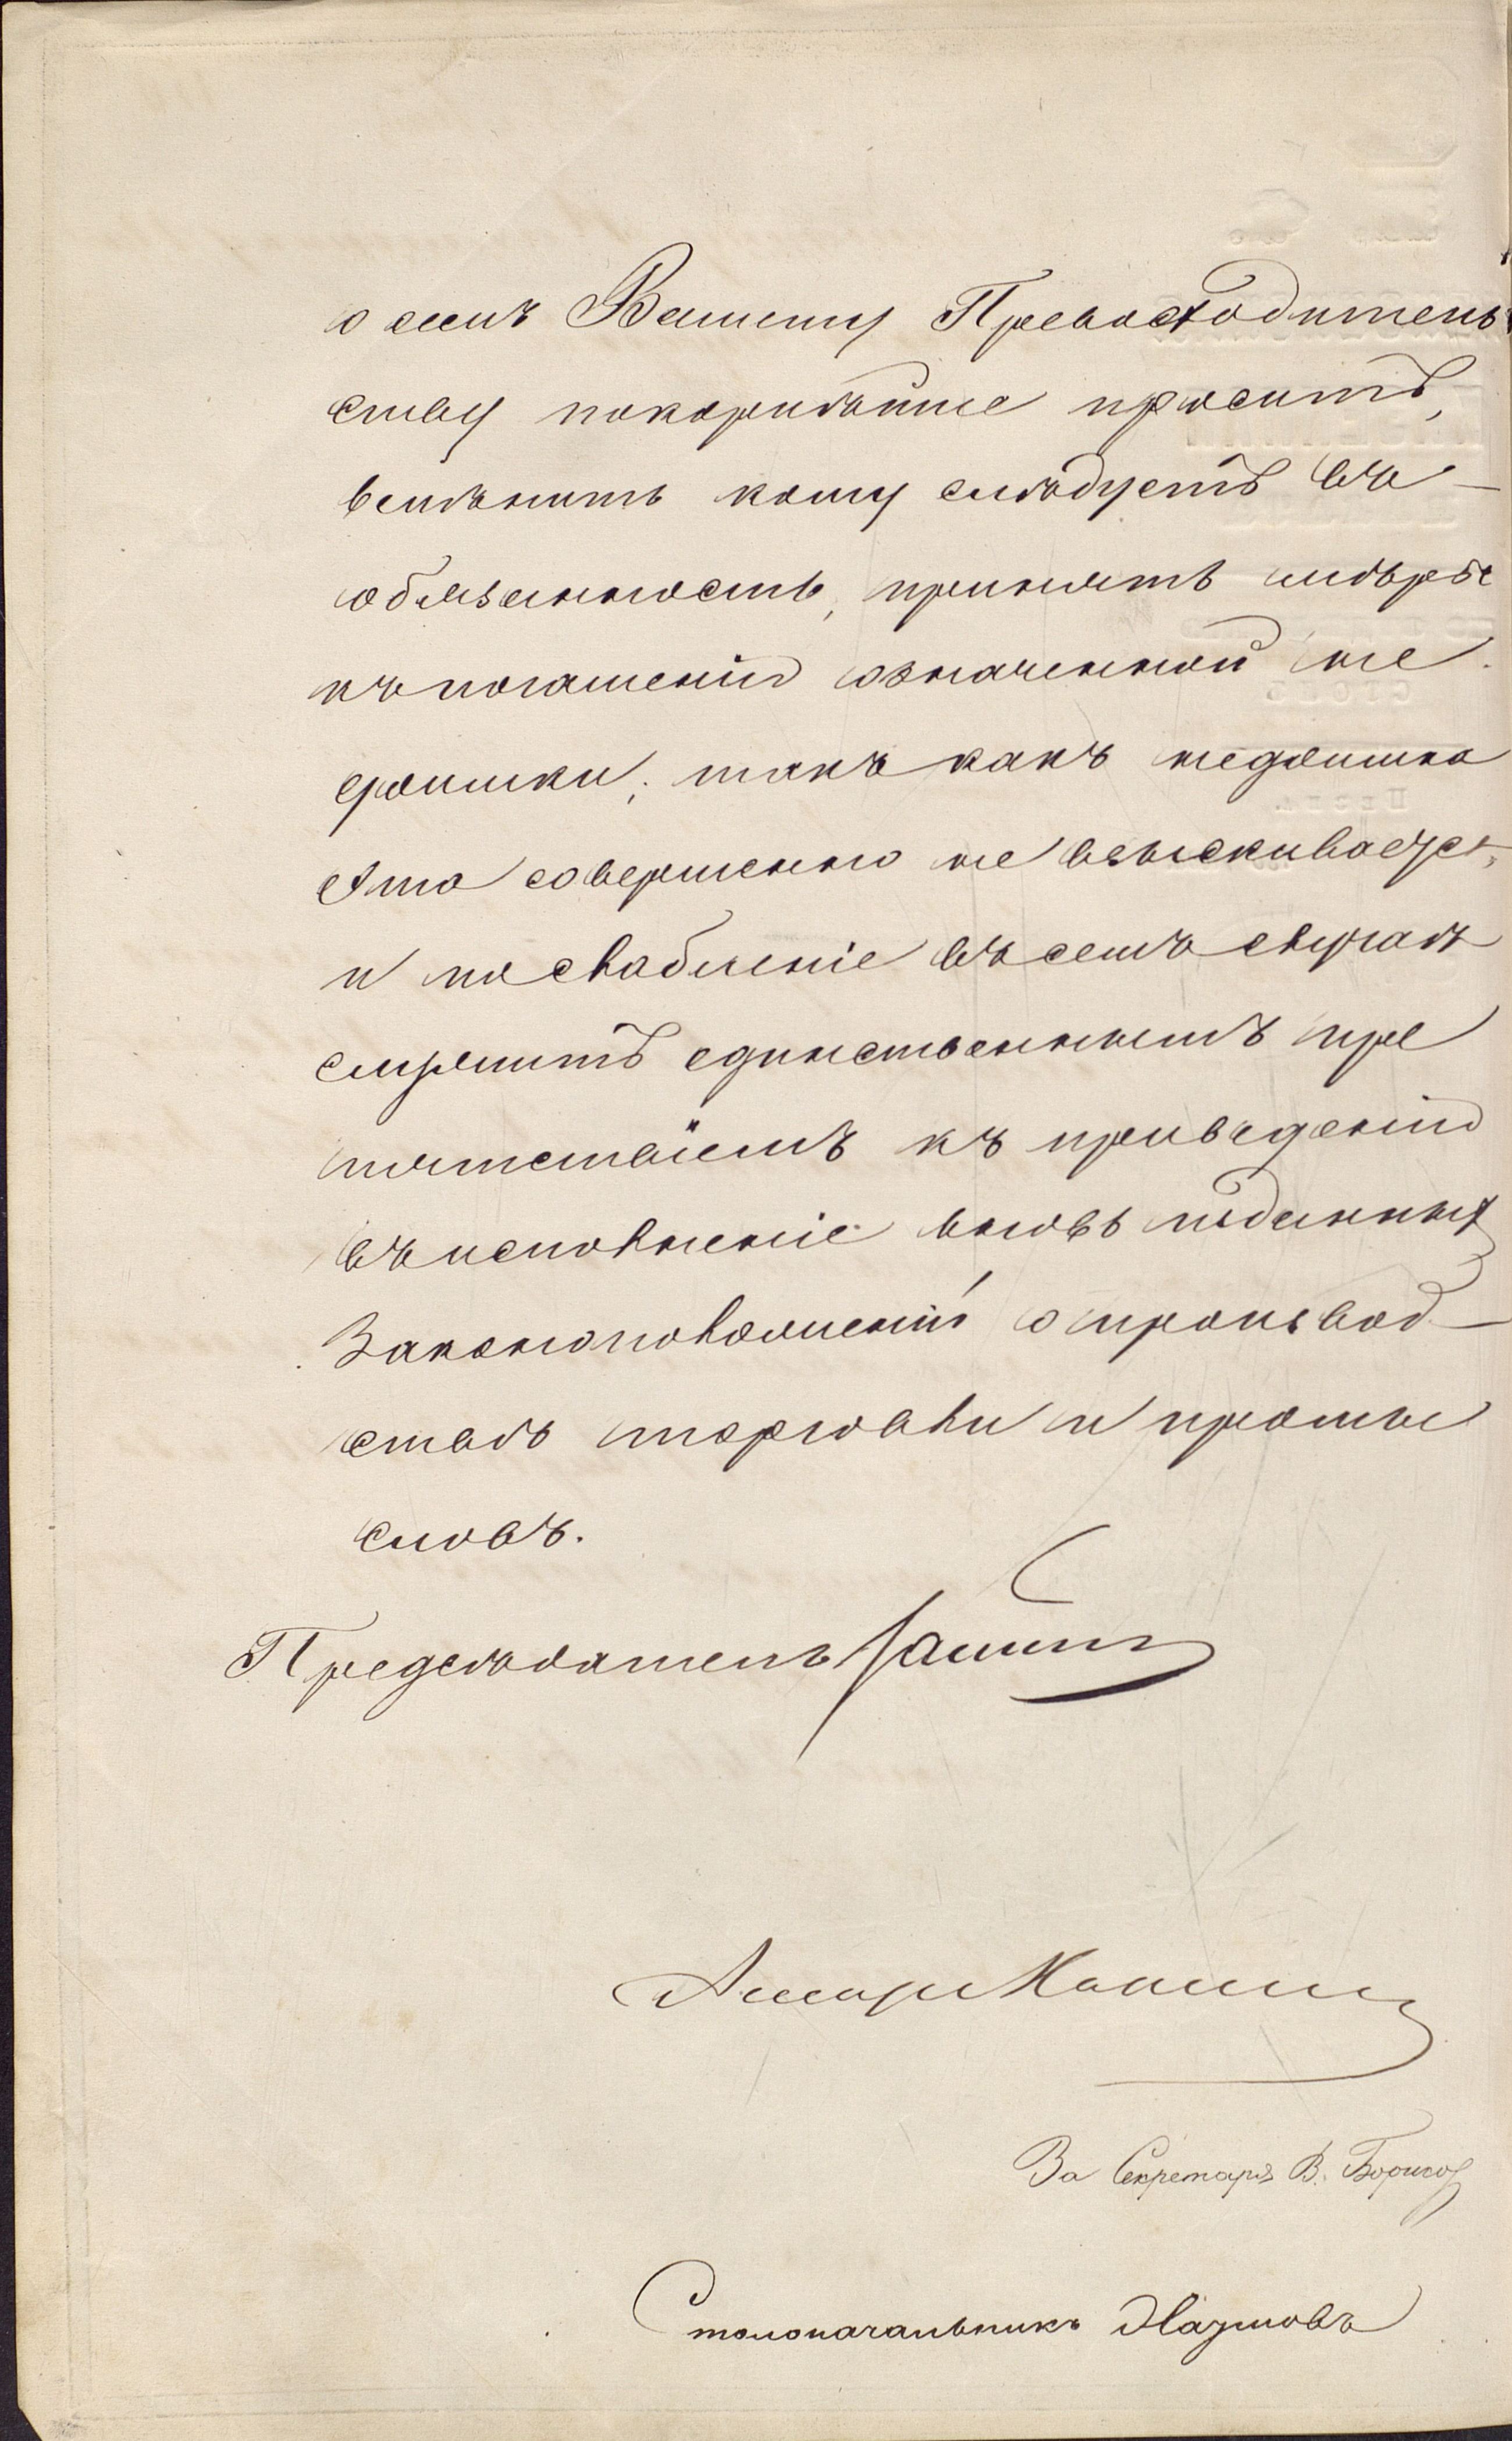 о семъ Вашему Превосходитель
ству покорнѣйше проситъ,
вмѣнить кому слѣдуетъ въ
обязанность, принять мѣры
къ погашенію означенной не
доимки; такъ какъ недоимка
эта совершенно не взыскивается,
и послабленіе въ семъ случаѣ
служитъ единственнымъ пре
пятствіемъ къ приведенію
въ исполненіе вновь изданныхъ
Законоположеній о производ
ствѣ торговли и промы
словъ.
Предсѣдатель
За Секретаря В. Борисов
Столоначальникъ Наумовъ